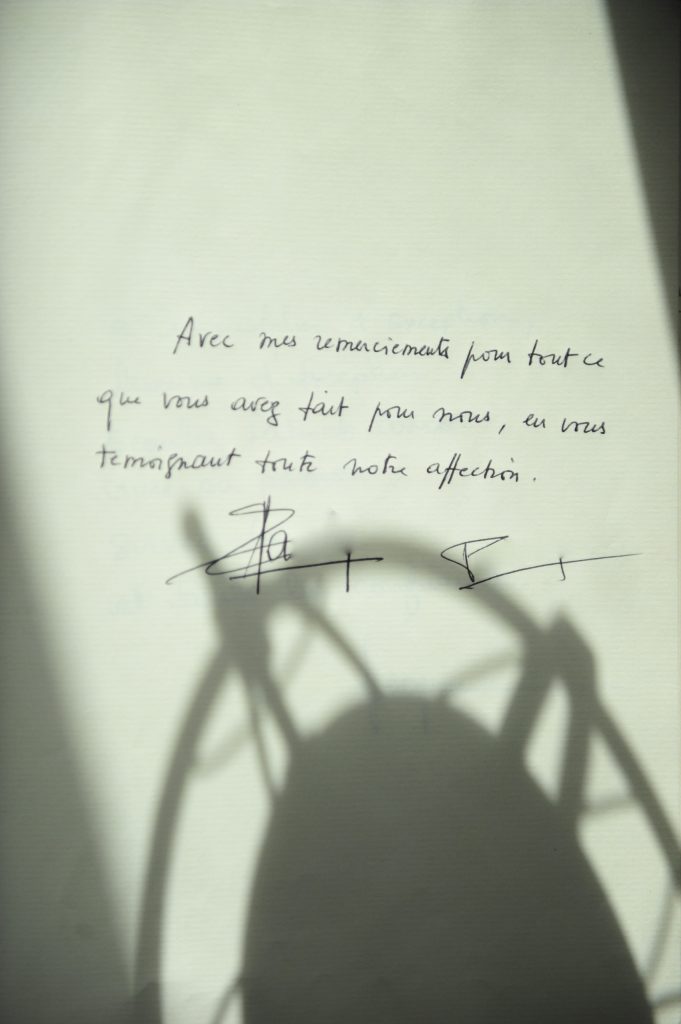 Avec mes remerciements pour tout ce
que vous avez fait pour nous, en vous
temoignant toute notre affection.